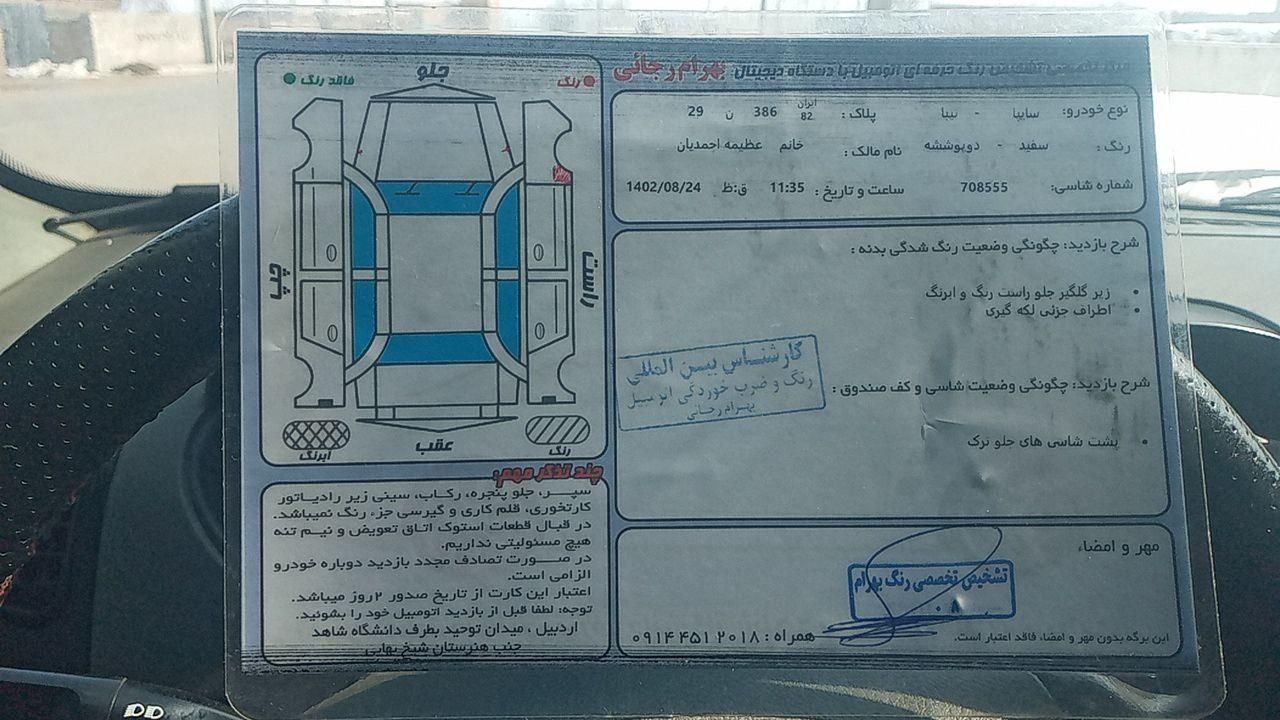 تشخیص رنگ حرفه ای اتومبیل با دستگاه دیجیتال بهرام رجائی
نوع خودرو: سایپا - تیبا پلاک: ایران 82 386 ن 29
رنگ: سفید - دوپوششه نام مالک: خانم عظیمه احمدیان
شماره شاسی: 708555 ساعت و تاریخ: 11:35 ق:ظ 1402/08/24
شرح بازدید: چگونگی وضعیت رنگ شدگی بدنه:
• زیر گلگیر جلو راست رنگ و ابرنگ
• اطراف جزئی لکه گیری
کارشناس بین المللی
رنگ و ضرب خوردگی اتومبیل
بهرام رجائی
شرح بازدید: چگونگی وضعیت شاسی و کف صندوق:
• پشت شاسی های جلو ترک
مهر و امضاء
تشخیص تخصصی رنگ بهرام
این برگه بدون مهر و امضاء فاقد اعتبار است.
همراه: ۰۹۱۴ ۴۵۱ ۲۰۱۸
رنگ
جلو
فاقد رنگ
راست
چپ
رنگ
عقب
ابرنگ
چند تذکر مهم:
سپر، جلو پنجره، رکاب، سینی زیر رادیاتور
کارتخوری، قلم کاری و گیرسی جزء رنگ نمیباشد.
در قبال قطعات استوک اتاق تعویض و نیم تنه
هیچ مسئولیتی نداریم.
در صورت تصادف مجدد بازدید دوباره خودرو
الزامی است.
اعتبار این کارت از تاریخ صدور ۲روز میباشد.
توجه: لطفا قبل از بازدید اتومبیل خود را بشوئید.
اردبیل، میدان توحید بطرف دانشگاه شاهد
جنب هنرستان شیخ بهایی